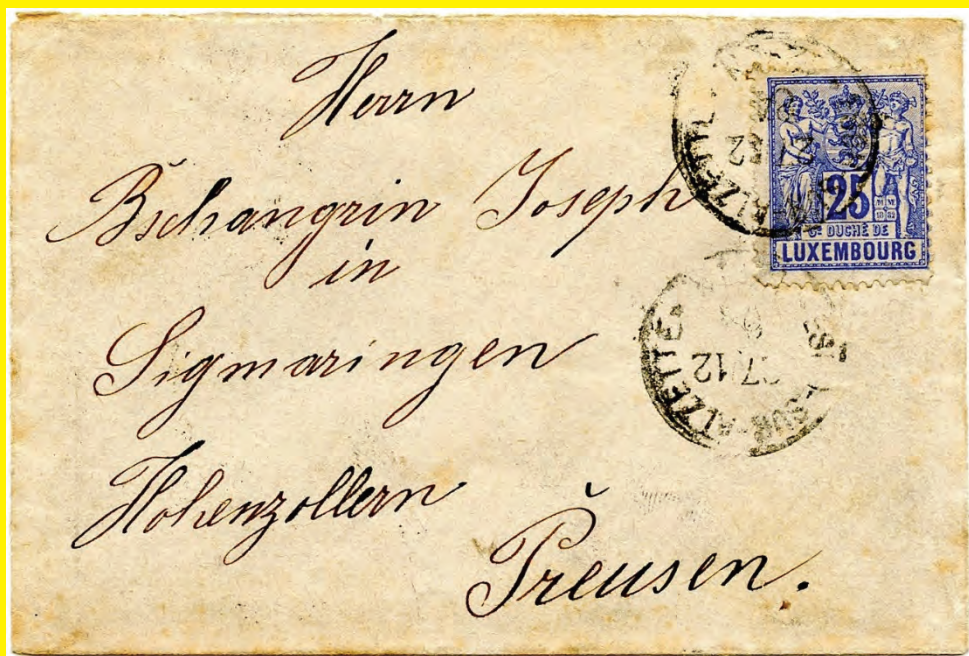 Herrn
Bschangrin Joseph
in
Sigmaringen
Hohenzollern
Preusen.
25
Gᴰ DUCHÉ DE
LUXEMBOURG
SUR-ALZETTE
27/12